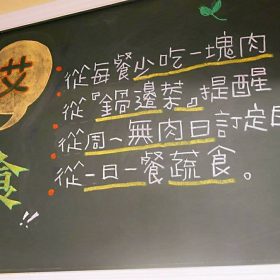 從每餐少吃一塊肉
從『鍋邊菜』提醒
從周一無肉日訂定
從一日一餐蔬食。
食!!